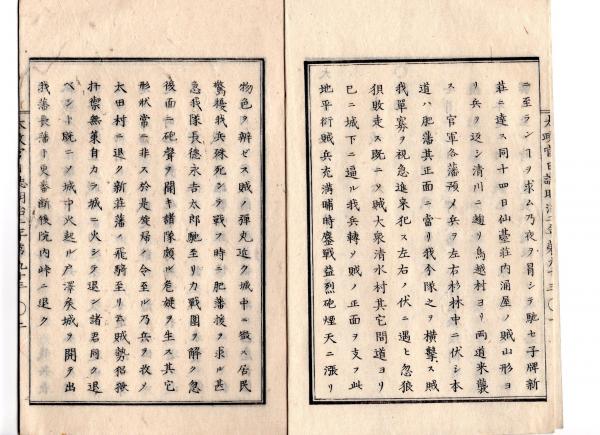 ニ至ランヿヲ求ム乃夜ヲ冒シテ馳セ子牌新
荘ニ達ス同十四日仙臺荘内涌屋ノ賊山形ヨ
リ兵ヲ返シ清川ニ趣リ鳥越村ヨリ両道来襲
ス官軍各藩預メ兵ヲ左右杉林中ニ伏シ本
道ハ肥藩其正面ニ當リ我今隊之ヲ横撃ス賊
我單寡ヲ視急進来犯ス左右ノ伏ニ遇ヒ忽狼
狽敗走ス既ニメ賊大衆清水村其它間道ヨリ
已ニ城下ニ逼ル我兵轉メ賊ノ正面ヲ支フ此
地平衍賊兵充満晡時鏖戰益烈砲煙天ニ漲リ
物色ヲ辨ゼス賊ノ弾丸近ク城中ニ徹ス居民
驚擾我兵殊死シテ戰フ時ニ肥藩援ヲ求ル甚
急我隊長德永吉太郎馳至リカ戰圍ヲ解ク忽
後面ニ砲聲ヲ聞キ諸隊頗ル危疑ヲ生ス其它
形状常ニ非ス於是旋帰ノ令至ル乃兵ヲ收メ
太田村ニ退ク新荘藩ノ飛騎至リ云賊勢猖獗
扞禦無策自カラ城ニ火シテ退ン諸君同ク退
ベシト既ニメ城中火起ル戸澤矦城ヲ開テ出
我藩長藩ト更番断後院内峠ニ退ク